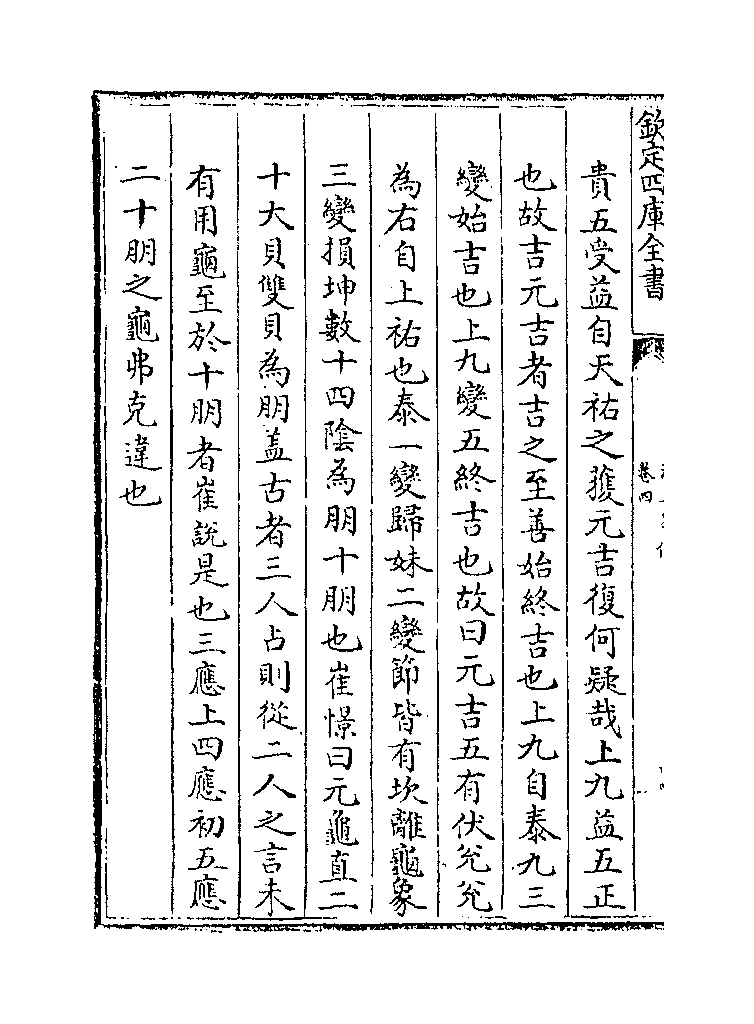 欽定四庫全書
卷四
貴五受益自天祐之獲元吉復何疑哉上九益五正
也故吉元吉者吉之至善始終吉也上九自泰九三
變始吉也上九變五終吉也故曰元吉五有伏兌兌
為右自上祐也泰一變歸妹二變節皆有坎離龜象
三變損坤數十四隂為朋十朋也崔憬曰元龜直二
十大貝雙貝為朋盖古者三人占則從二人之言未
有用龜至於十朋者崔説是也三應上四應初五應
二十朋之龜弗克違也